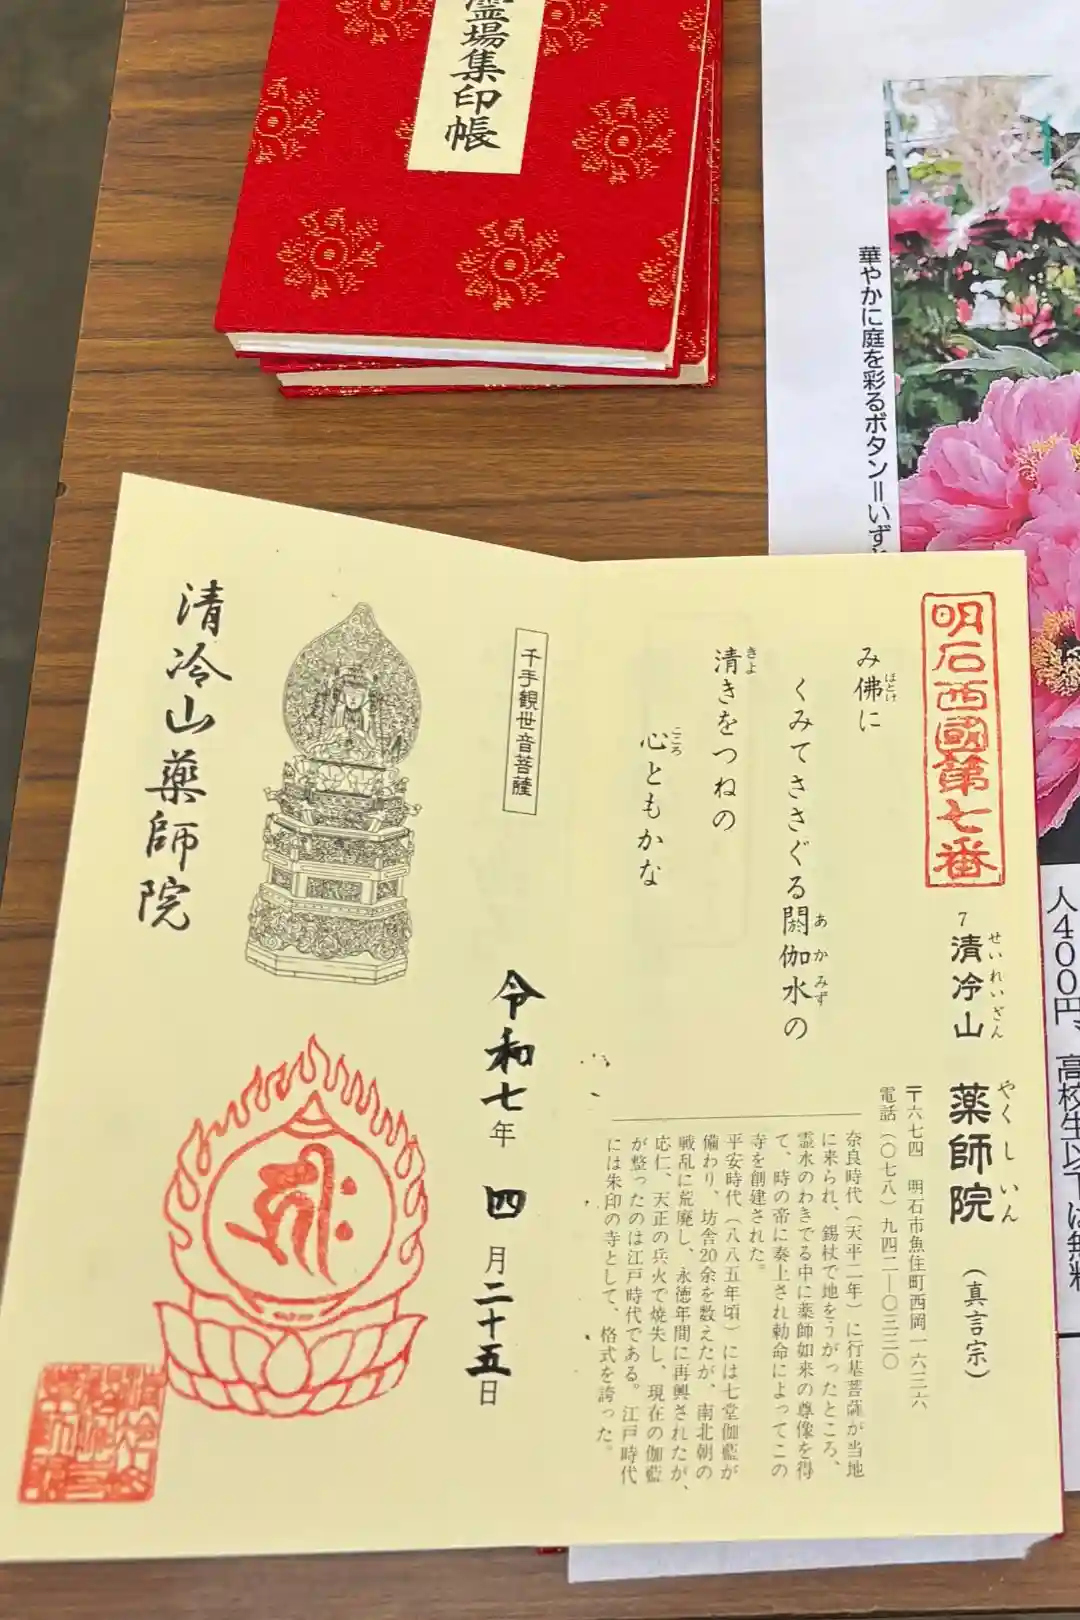 霊場集印帳
華やかに庭を彩るボタン＝いず
人400円、高校生以下は無料
明石西國第七番
7 清冷山 薬師院 (真言宗)
せいれいざん やくしいん
〒六七四 明石市魚住町西岡一六三六
電話 (〇七八) 九四二―〇三三〇
み佛に
ほとけ
くみてささぐる閼伽水の
あかみず
清きをつねの
きよ
心ともかな
こころ
奈良時代(天平二年)に行基菩薩が当地
に来られ、錫杖で地をうがったところ、
霊水のわきでる中に薬師如来の尊像を得
て、時の帝に奏上され勅命によってこの
寺を創建された。
平安時代(八八五年頃)には七堂伽藍が
備わり、坊舎20余を数えたが、南北朝の
戦乱に荒廃し、永徳年間に再興されたが、
応仁、天正の兵火で焼失し、現在の伽藍
が整ったのは江戸時代である。江戸時代
には朱印の寺として、格式を誇った。
千手観世音菩薩
令和七年 四月二十五日
清冷山薬師院